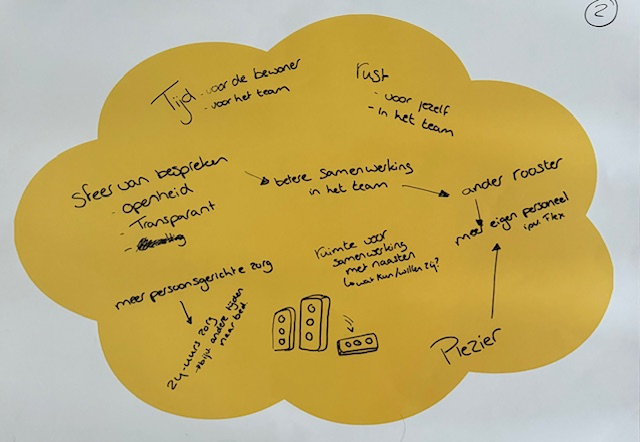 2
Tijd - voor de bewoner
- voor het team
rust
- voor jezelf
- in het team
Sfeer van bespreken
- openheid
- Transparant
betere samenwerking
in het team
ander rooster
meer eigen personeel
ipv. Flex
ruimte voor
samenwerking
met naasten
↳ wat kun/willen zij?
meer persoonsgerichte zorg
24-uurs zorg
→ bijv andere tijden
naar bed
Plezier